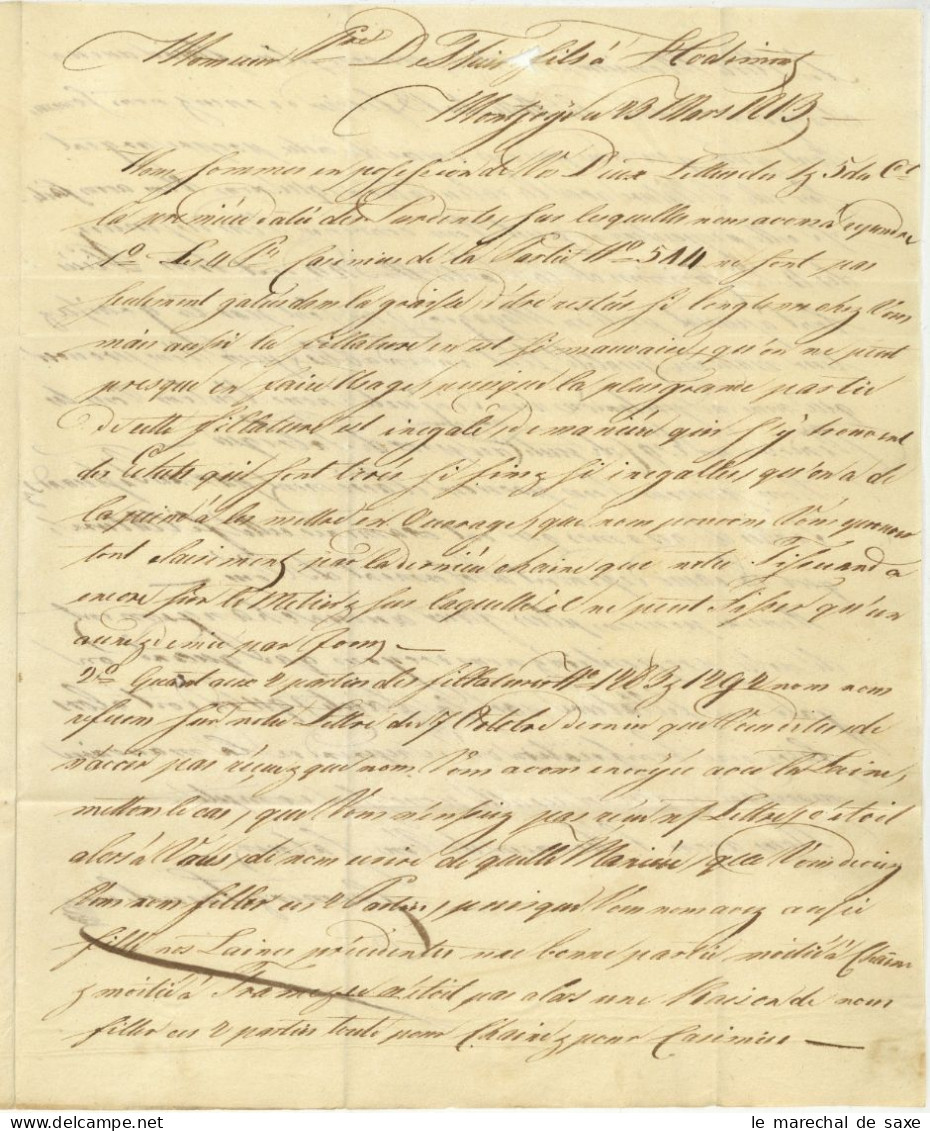 Monsieur Pre De Thier fils à Hodimont
Montjoye ce 23 Mars 1813
Nous sommes en possession de Vos Deux Lettres des 1 & 5 du Ct
la première datée de, sur lesquelles nous avons à repondre
1o Les 4 Ps Casimirs de la Partie No 514 ne sont pas
seulement gatés dans la graisse, d'être restés si longtems chez Vous
mais aussi la fillature en est si mauvaise, qu'on ne peut
presque en faire Usage, puisque la plus grande partie
de cette fillature est inegale, de manière qu'il s'y trouvent
des qui sont tres si fins & si inegalles, qu'on a de
la peine à les mettre en Ouvrage, que nous pouvons Vous prouver
tout clairement par la dernière chaine que notre Tisserand a
encore sur le Metier & sur laquelle il ne peut Tisser qu'un
aune & demie par Jour, —
2o Quant aux 2 parties de fillatures No 1283 & 1292 nous nous
referons sur notre Lettre du 7 Octobre dernier que Vous dites de
n'avoir pas réçue & que nous Vous avons envoyée avec la Laine,
mettons le cas, que Vous n'eussiez pas réçu n/ Lettre, c'étoit
alors à Vous, de nous ecrire de quelle Manière, que Vous deviez
nous filler ces 2 Parties, puisque Vous nous avez aussi
fillé nos Laines précédentes une bonne partie moitié à Chaine
& moitié à Trame, ce n'étoit pas alors une Raison de nous
filler ces 2 parties toute pour Chaine & pour Casimirs —
le marechal de saxe